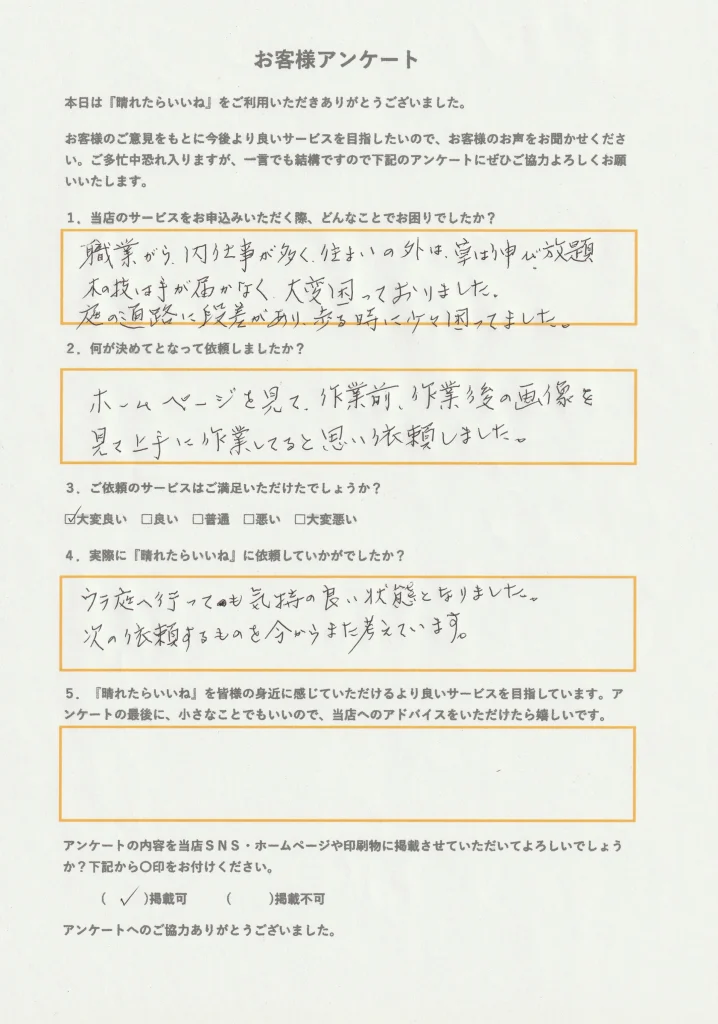 お客様アンケート
本日は『晴れたらいいね』をご利用いただきありがとうございました。
お客様のご意見をもとに今後より良いサービスを目指したいので、お客様のお声をお聞かせくださ
い。ご多忙中恐れ入りますが、一言でも結構ですので下記のアンケートにぜひご協力よろしくお願
いいたします。
1．当店のサービスをお申込みいただく際、どんなことでお困りでしたか？
職業がら、内仕事が多く、住まいの外は、草は伸び放題
木の枝は手が届かなく、大変困っておりました。
庭の通路に段差があり、歩る時に少々困ってました。
2．何が決めてとなって依頼しましたか？
ホームページを見て、作業前、作業後の画像を
見て上手に作業してると思い依頼しました。
3．ご依頼のサービスはご満足いただけたでしょうか？
☑大変良い　□良い　□普通　□悪い　□大変悪い
4．実際に『晴れたらいいね』に依頼していかがでしたか？
ウラ庭へ行っても気持の良い状態となりました。
次の依頼するものを今からまた考えています。
5．『晴れたらいいね』を皆様の身近に感じていただけるより良いサービスを目指しています。ア
ンケートの最後に、小さなことでもいいので、当店へのアドバイスをいただけたら嬉しいです。
アンケートの内容を当店ＳＮＳ・ホームページや印刷物に掲載させていただいてよろしいでしょう
か？下記から〇印をお付けください。
（　✓　）掲載可　　（　　　）掲載不可
アンケートへのご協力ありがとうございました。